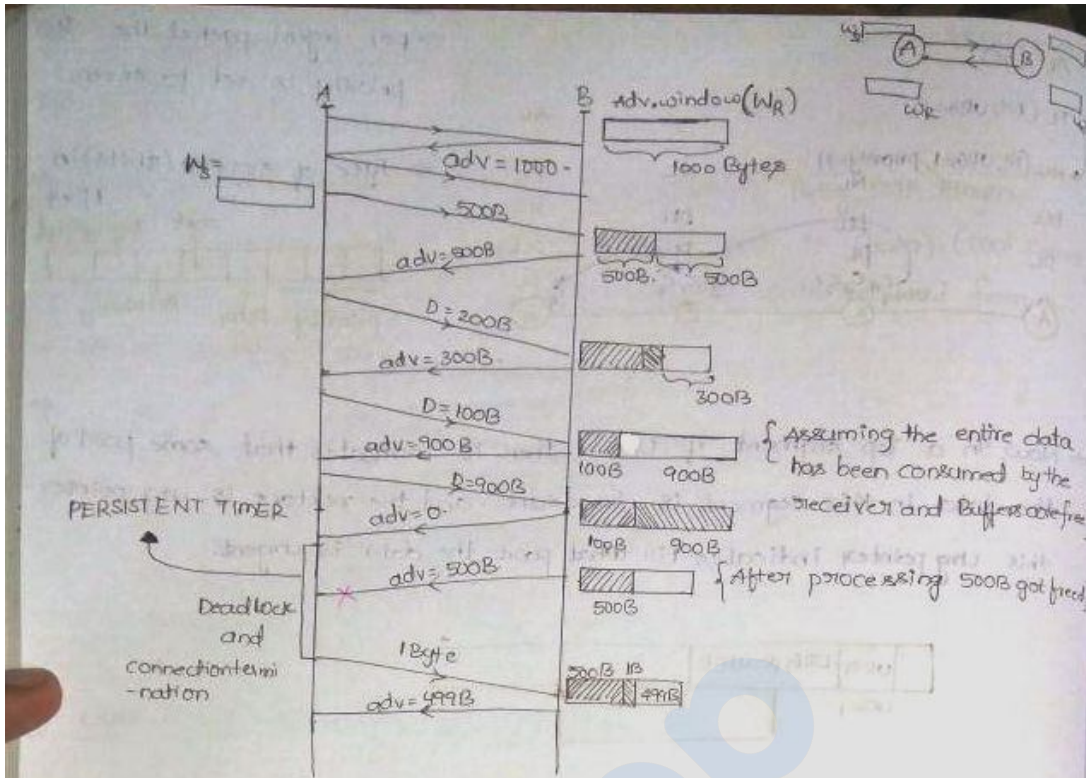 Ws
A
B
WR
A
B
Adv.window(WR)
adv=1000
1000 Bytes
Ws=
500B
adv=500B
500B
500B
D=200B
adv=300B
300B
D=100B
adv=900B
100B
900B
{ Assuming the entire data
has been consumed by the
receiver and Buffers are free
D=900B
PERSISTENT TIMER
adv=0
100B
900B
adv=500B
500B
{ After processing 500B got freed
Deadlock
and
connectiontermi
-nation
1Byte
500B
1B
499B
adv=499B